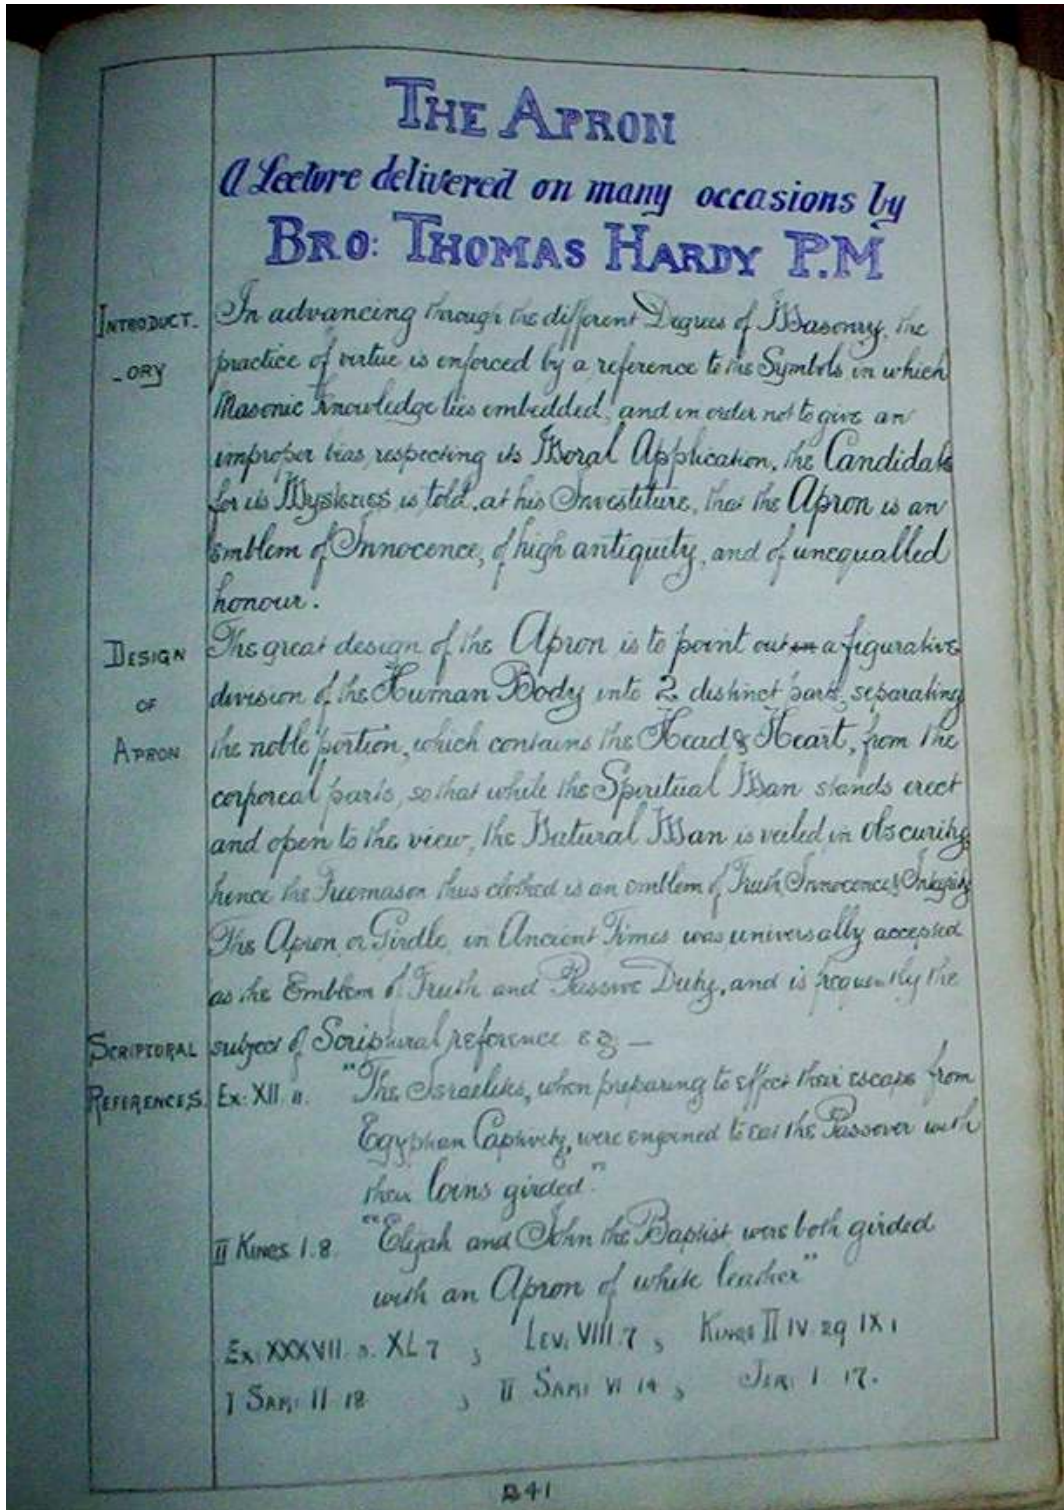 THE APRON
A Lecture delivered on many occasions by
BRO: THOMAS HARDY P.M
INTRODUCT-
-ORY
In advancing through the different Degrees of Masonry, the
practice of virtue is enforced by a reference to the Symbols in which
Masonic Knowledge lies embedded, and in order not to give an
improper bias respecting its Moral Application, the Candidate
for its Mysteries is told, at his Investiture, that the Apron is an
emblem of Innocence, of high antiquity, and of unequalled
honour.
DESIGN
OF
APRON
The great design of the Apron is to point out a figurative
division of the Human Body into 2 distinct parts, separating
the noble portion, which contains the Head & Heart, from the
corporeal parts, so that while the Spiritual Man stands erect
and open to the view, the Natural Man is veiled in obscurity,
hence the Freemason thus clothed is an emblem of Truth, Innocence & Integrity
The Apron or Girdle, in Ancient Times was universally accepted
as the Emblem of Truth and Passive Duty, and is frequently the
SCRIPTORAL
REFERENCES.
subject of Scriptural reference eg —
Ex: XII. 11. "The Israelites, when preparing to effect their escape from
Egyptian Captivity, were enjoined to eat the Passover with
their loins girded."
II KINGS 1.8. "Elijah and John the Baptist were both girded
with an Apron of white leather"
Ex: XXXVII. XL 7 , LEV: VIII. 7 , KINGS II IV 29 IX 1
I SAM: II 18 , II SAM: VI 14 , JER: 1 17.
241